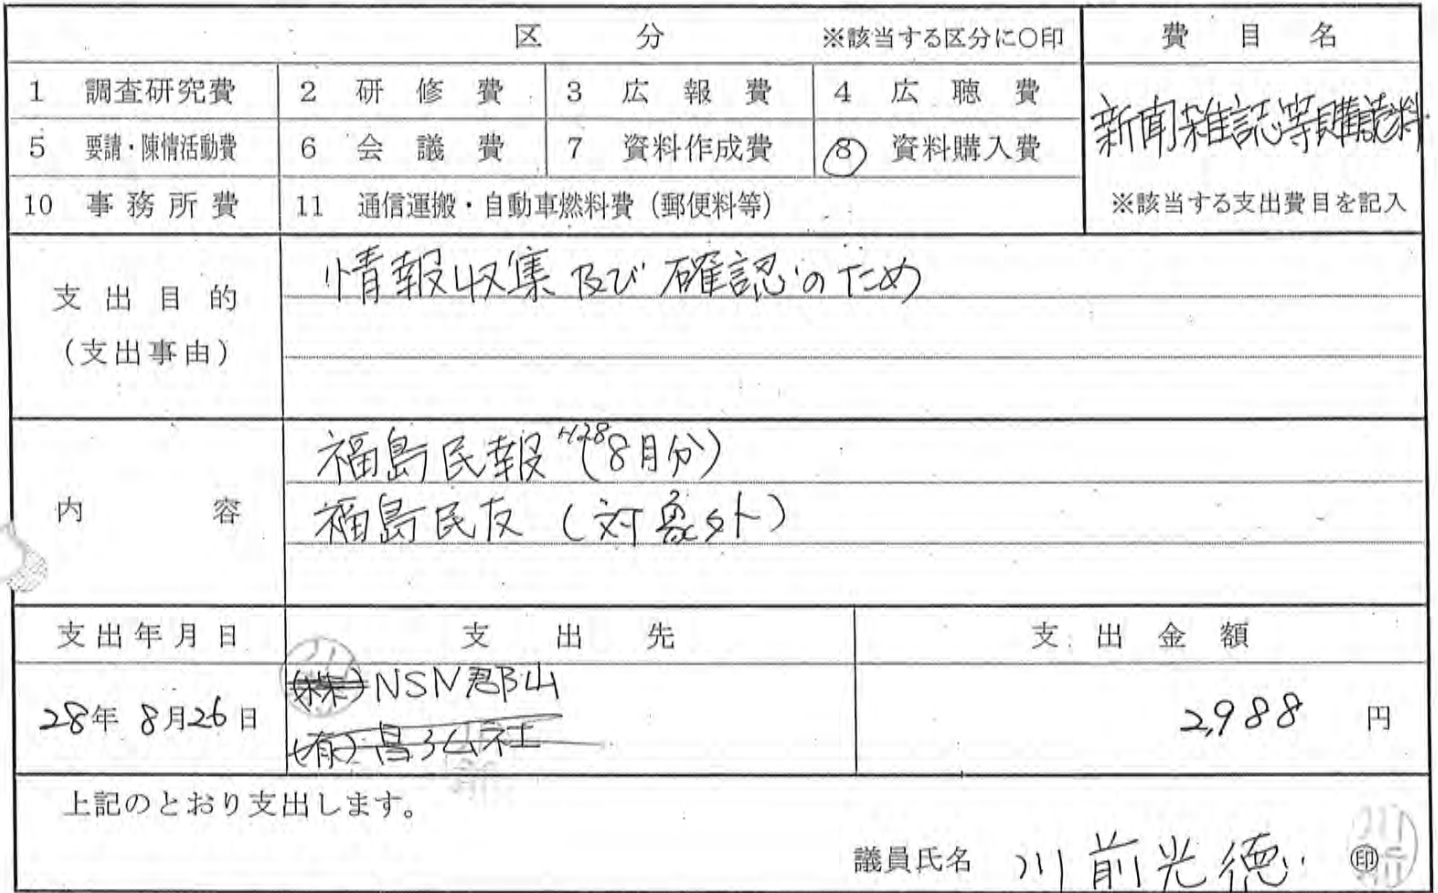 区 分 ※該当する区分に○印
費 目 名
1 調査研究費 2 研 修 費 3 広 報 費 4 広 聴 費
5 要請・陳情活動費 6 会 議 費 7 資料作成費 ⑧ 資料購入費
新聞雑誌等購読料
10 事 務 所 費 11 通信運搬・自動車燃料費（郵便料等）
※該当する支出費目を記入
支 出 目 的
（支出事由）
情報収集及び確認のため
内 容
福島民報 H28(8月分)
福島民友（対象外）
支出年月日 支 出 先 支 出 金 額
28年 8月26日
(株)NSN郡山
2,988 円
上記のとおり支出します。
議員氏名 川前光徳 ㊞